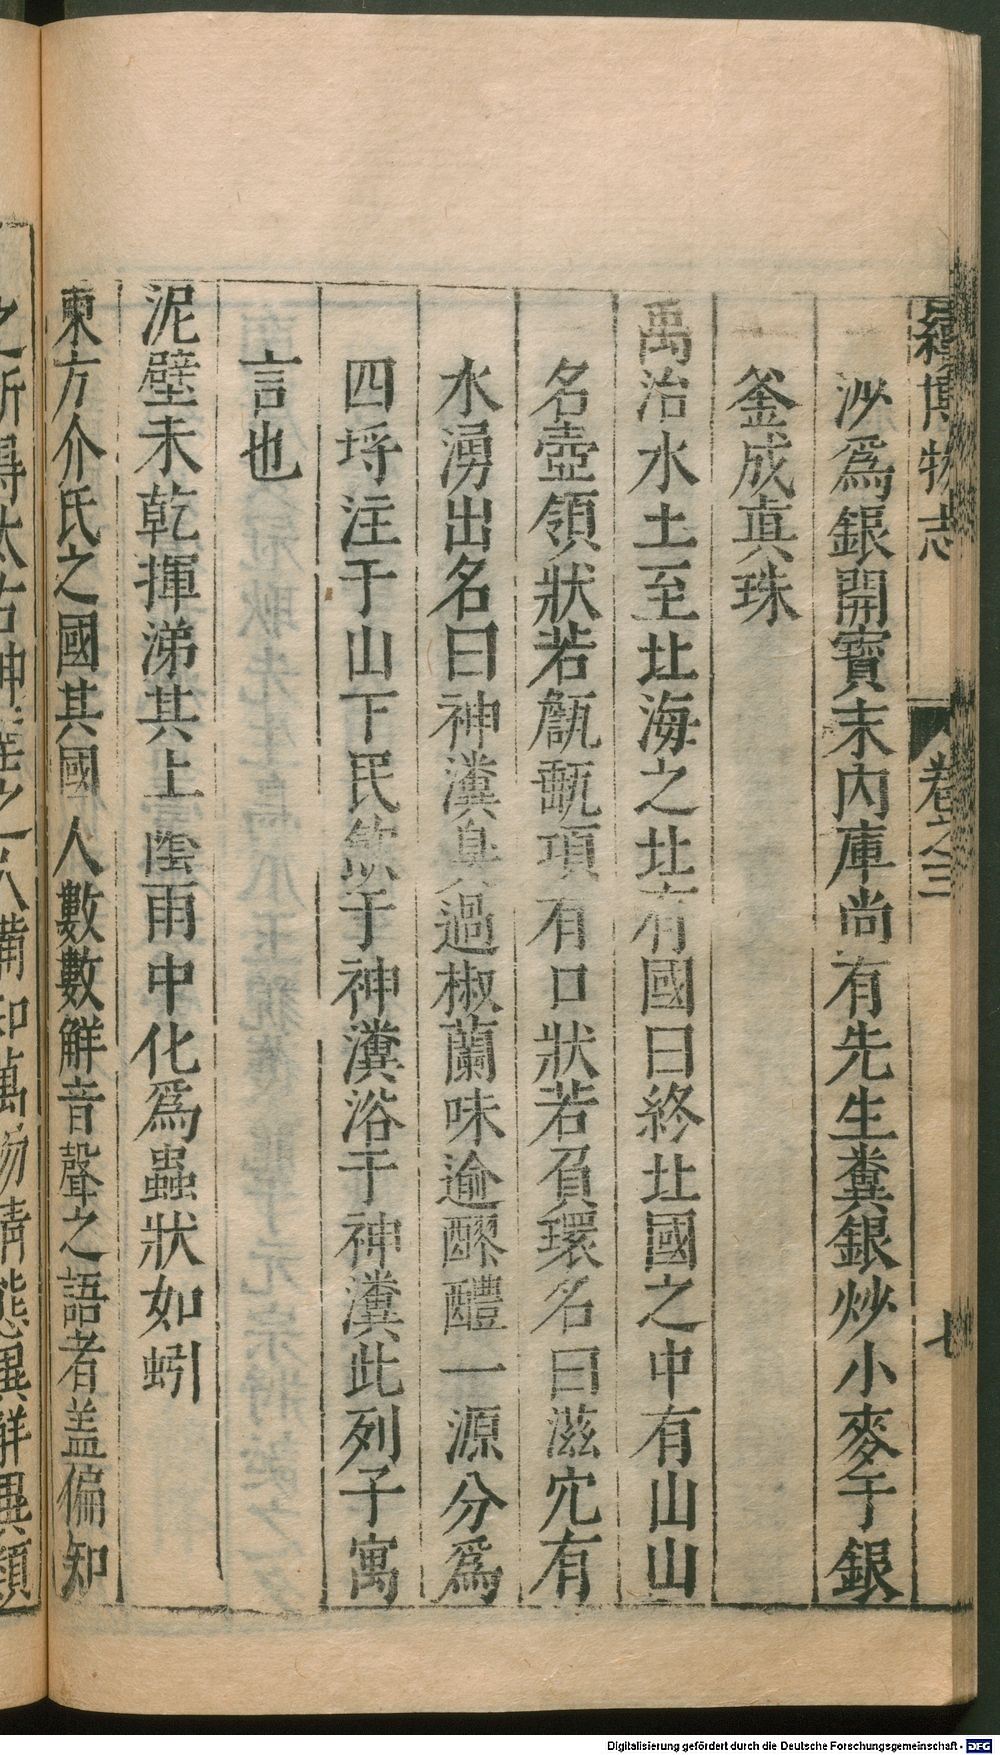 續博物志 卷之三 七
沙爲銀開寶末內庫尚有先生糞銀炒小麥于銀
釜成真珠
禹治水土至北海之北有國曰終北國之中有山山
名壺領狀若甔甀項有口狀若員環名曰滋穴有
水湧出名曰神瀵臭過椒蘭味逾醪醴一源分爲
四埒注于山下民飲于神瀵浴于神瀵此列子寓
言也
泥壁未乾揮涕其上陰雨中化爲蟲狀如蚓
東方介氏之國其國人數數解音聲之語者盖偏知
之所得太古神聖之人備知萬物情態異解異類
Digitalisierung gefördert durch die Deutsche Forschungsgemeinschaft - DFG